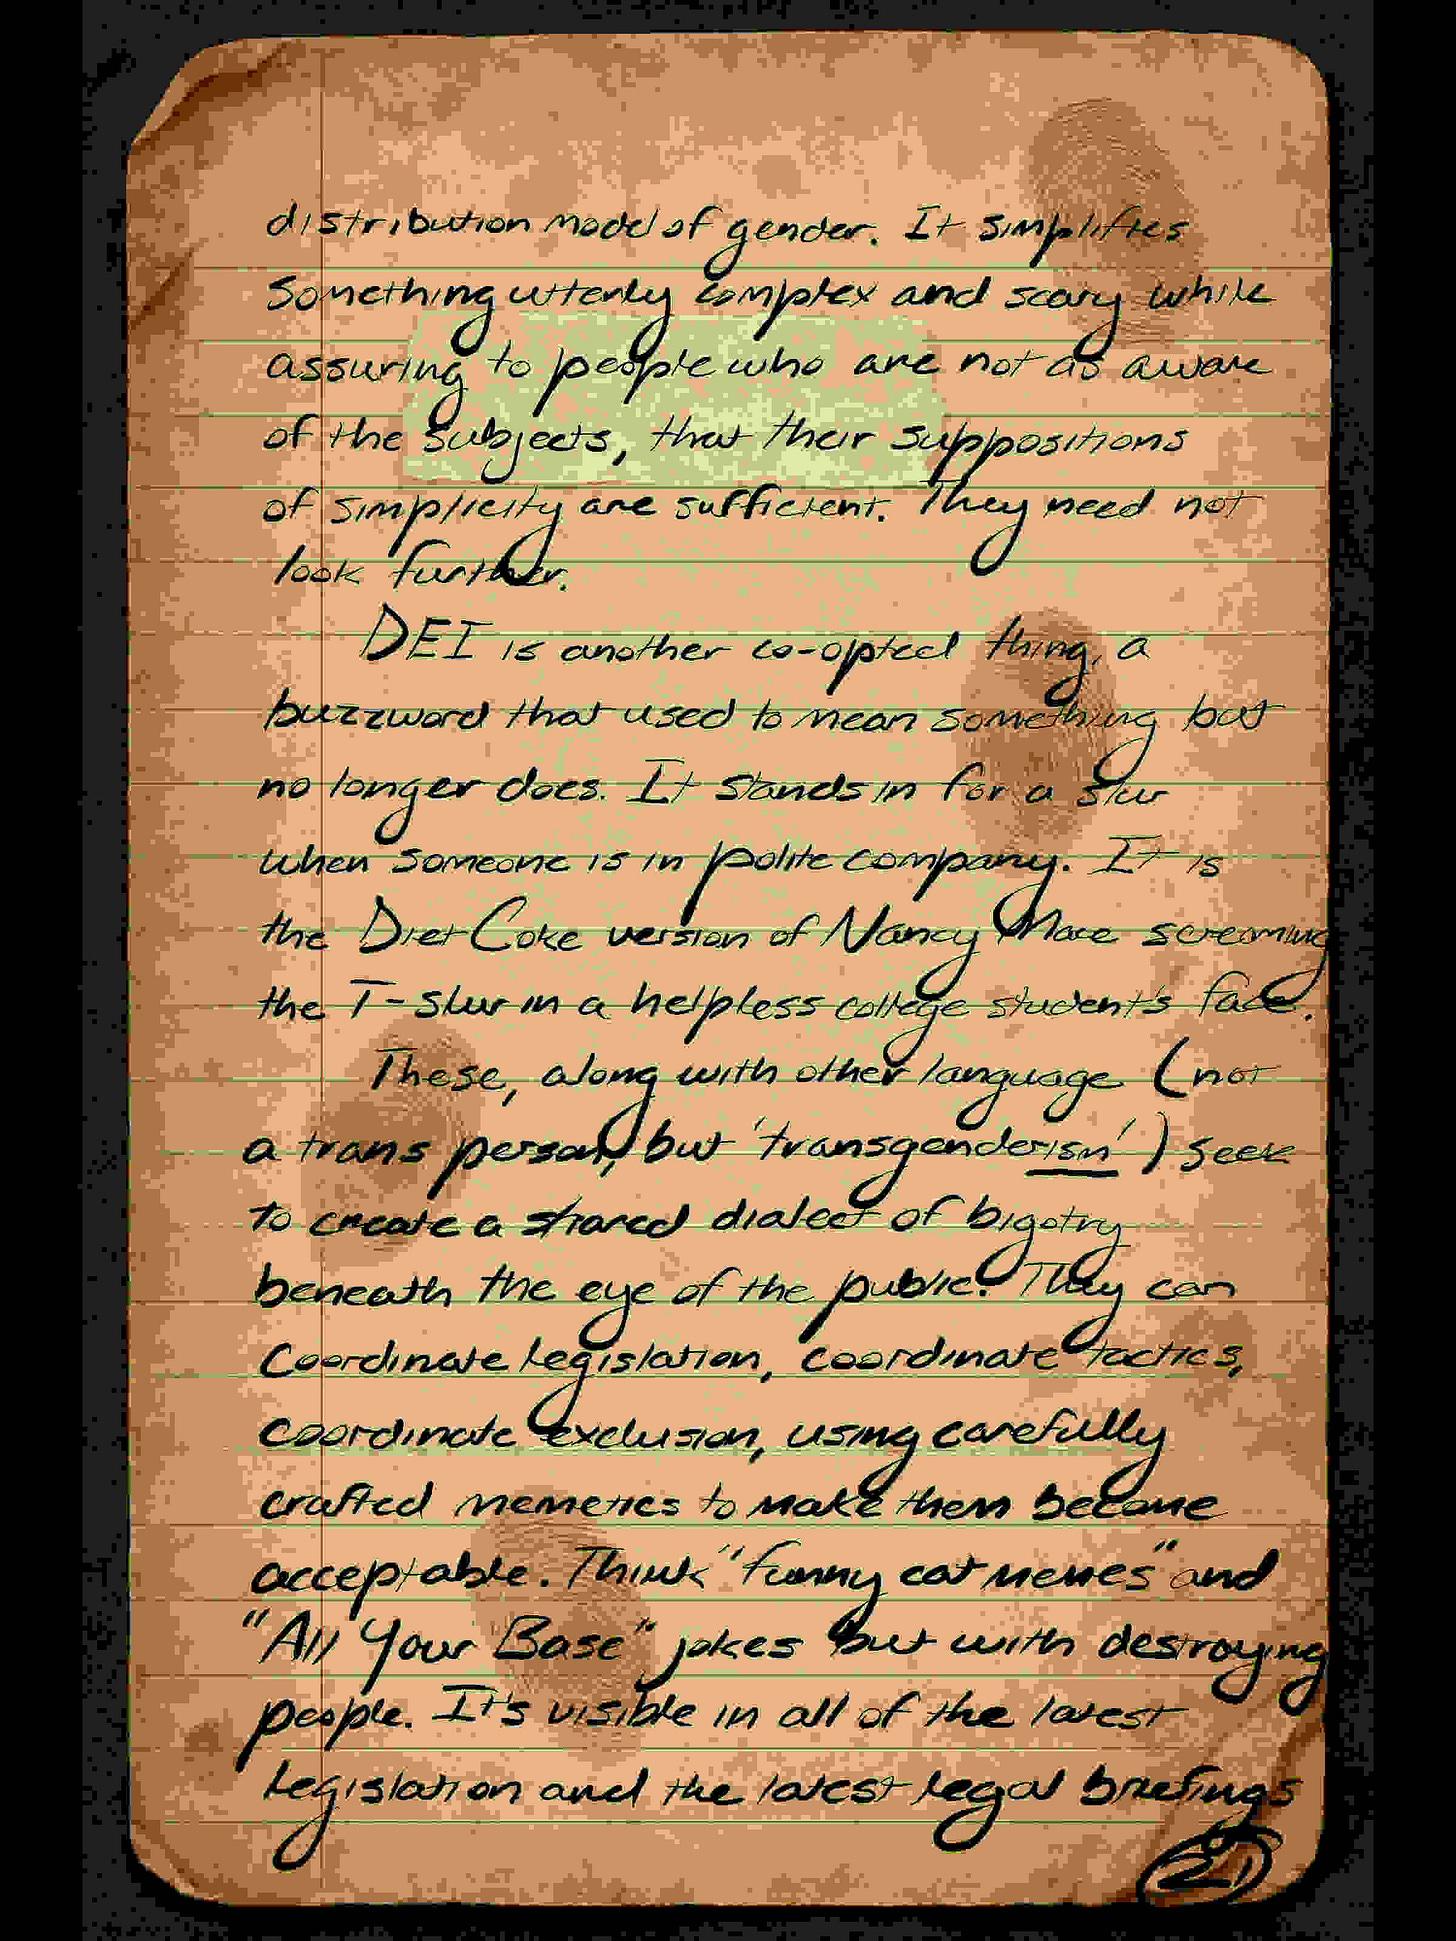 distribution model of gender. It simplifies
something utterly complex and scary while
assuring to people who are not as aware
of the subjects, that their suppositions
of simplicity are sufficient. They need not
look further.
DEI is another co-opted thing, a
buzzword that used to mean something but
no longer does. It stands in for a slur
when someone is in polite company. It is
the Diet Coke version of Nancy Mace screaming
the T-slur in a helpless college student's face.
These, along with other language (not
a trans person, but 'transgenderism') seek
to create a shared dialect of bigotry
beneath the eye of the public. They can
coordinate legislation, coordinate tactics,
coordinate exclusion, using carefully
crafted memetics to make them become
acceptable. Think "funny cat memes" and
"All Your Base" jokes but with destroying
people. It's visible in all of the latest
legislation and the latest legal briefings
21